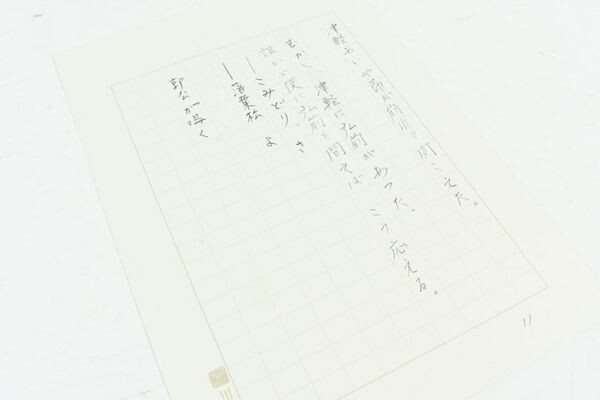 津軽あいや節が時折と聞こえた。
津軽に弘前があった、
むかし僕に弘前を問えば、こう応える。
誰か
こみどり、よ さ
落葉松
郭公が鳴く
11